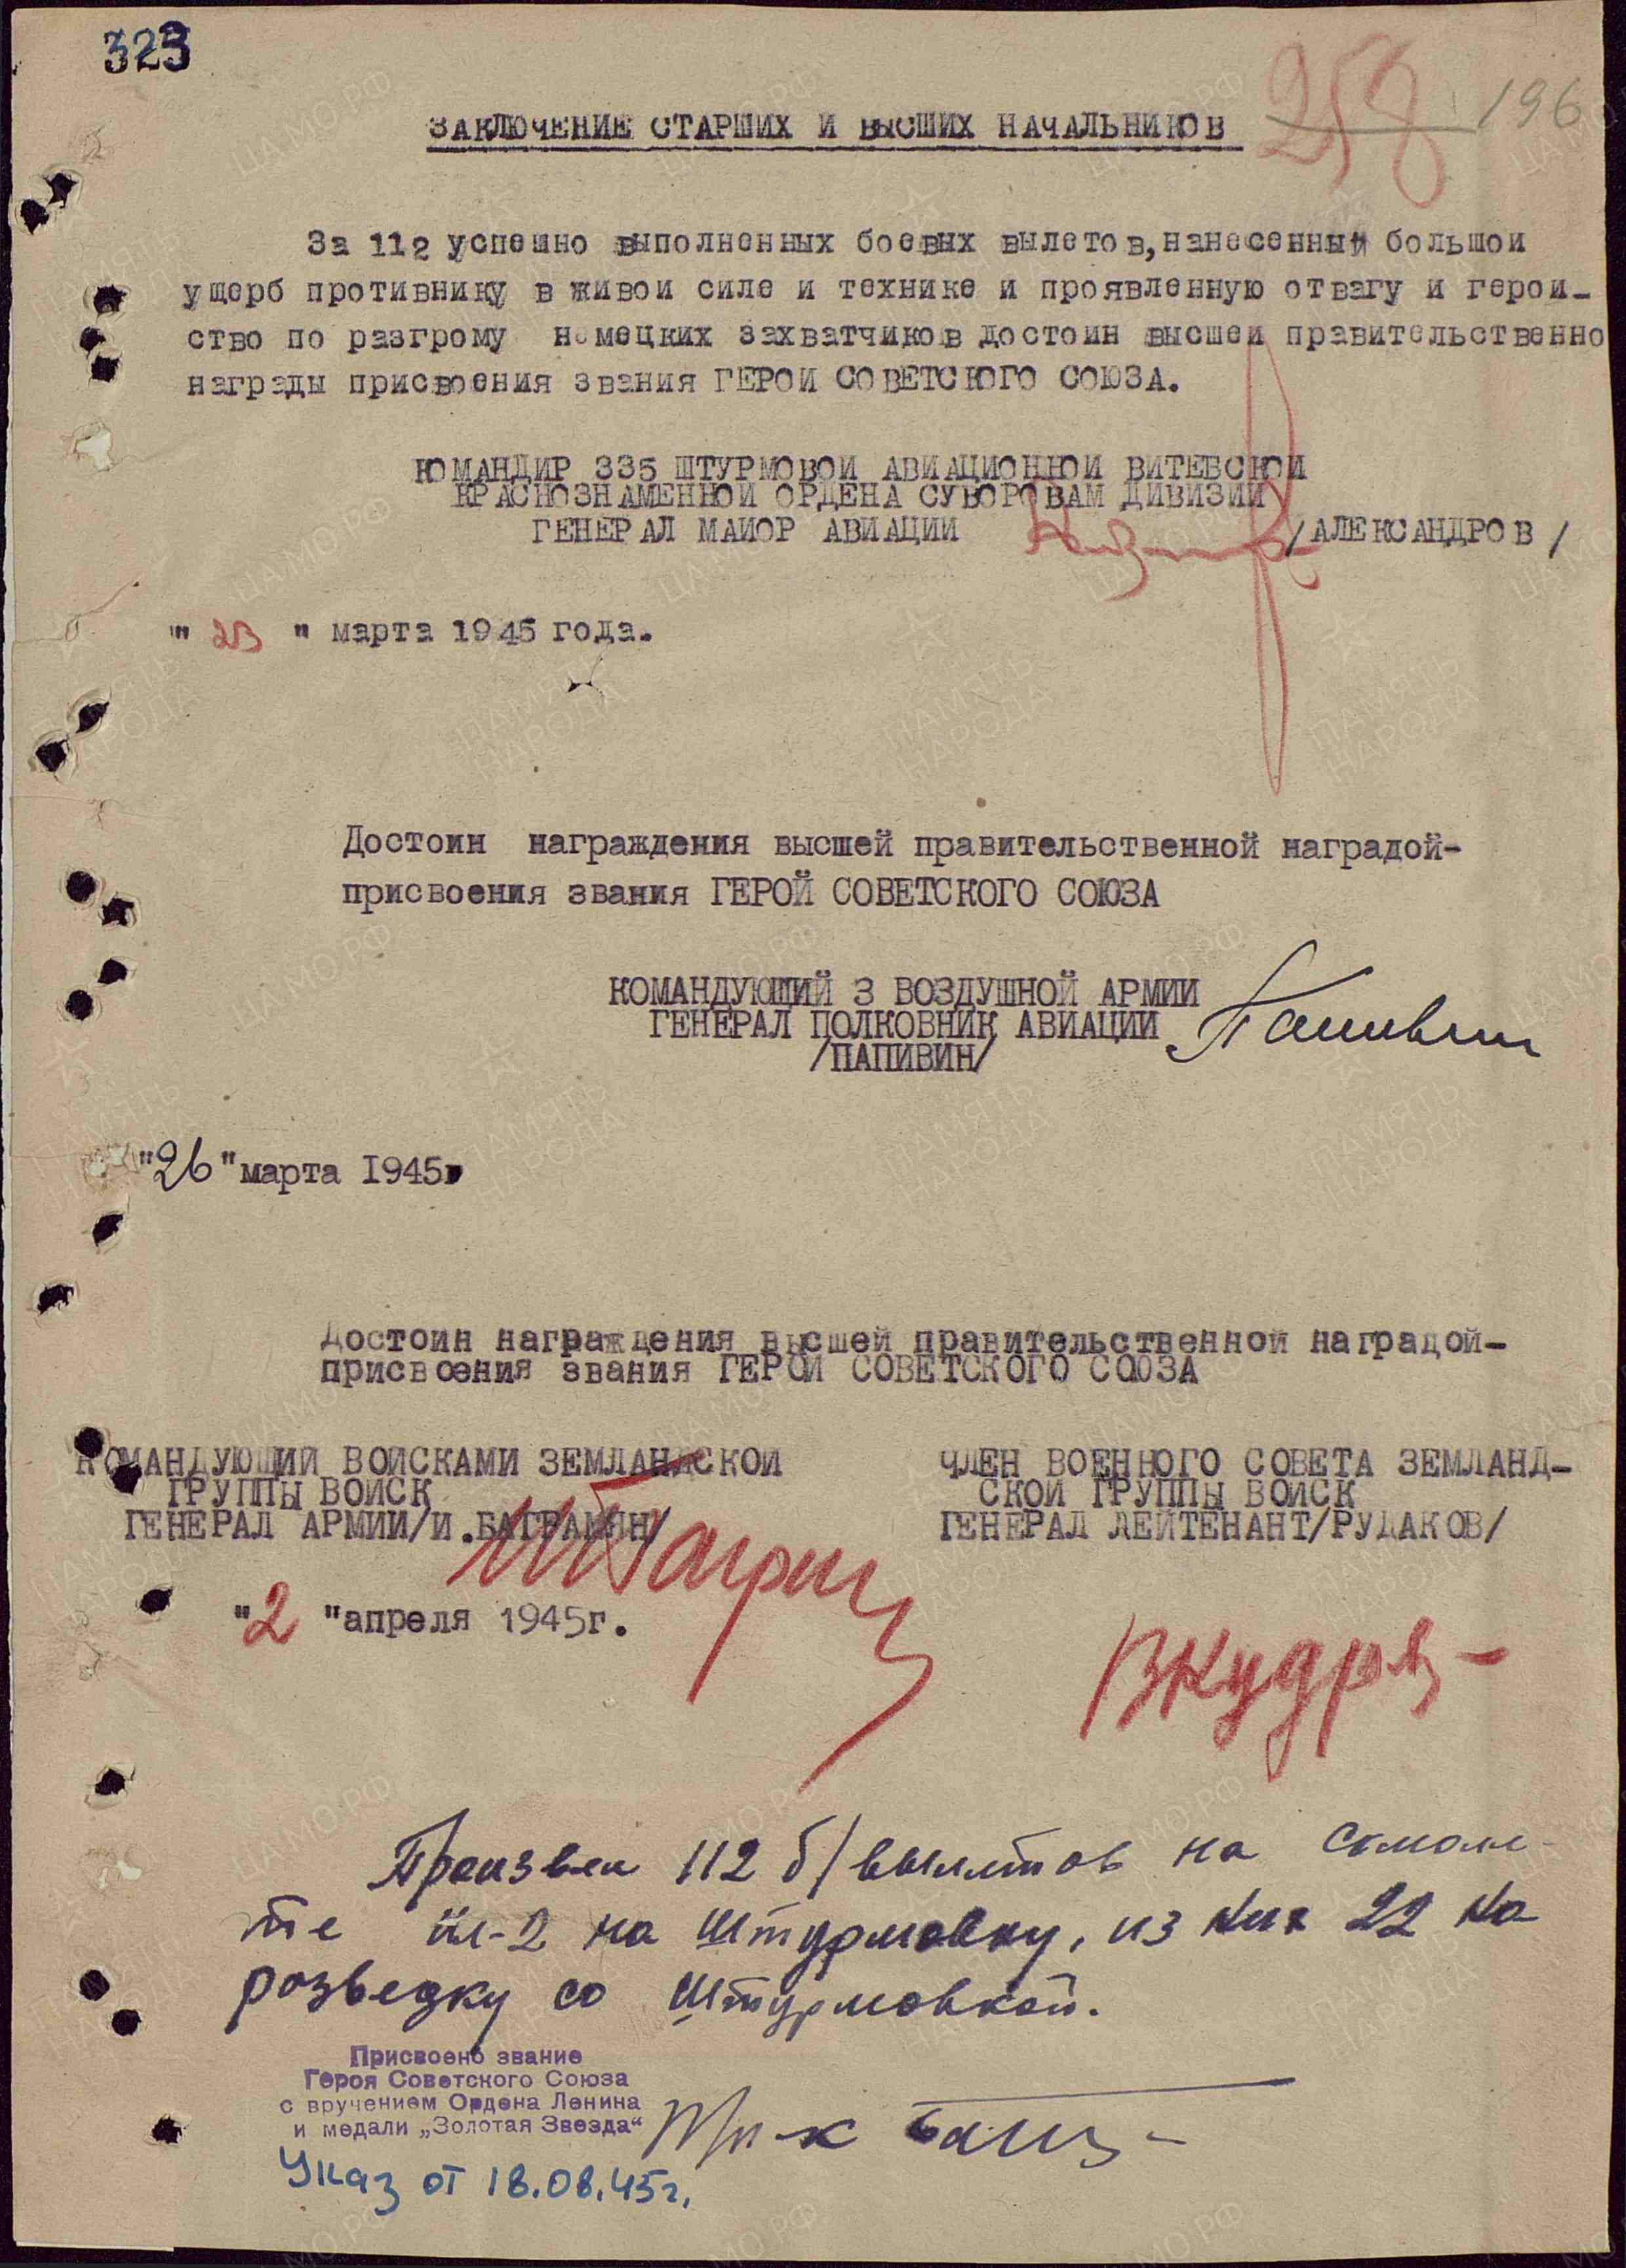 323
258 196
ЗАКЛЮЧЕНИЕ СТАРШИХ И ВЫСШИХ НАЧАЛЬНИКОВ
За 112 успешно выполненных боевых вылетов, нанесенный большои
ущерб противнику в живои силе и технике и проявленную отвагу и герои-
ство по разгрому немецких захватчиков достоин высшеи правительственно
награды присвоения звания ГЕРОИ СОВЕТСКОГО СОЮЗА.
КОМАНДИР 335 ШТУРМОВОИ АВИАЦИОННОИ ВИТЕБСКОИ
КРАСНОЗНАМЕННОИ ОРДЕНА СУВОРОВАМ ДИВИЗИИ
ГЕНЕРАЛ МАИОР АВИАЦИИ /АЛЕКСАНДРОВ/
" 23 " марта 1945 года.
Достоин награждения высшей правительственной наградой-
присвоения звания ГЕРОЙ СОВЕТСКОГО СОЮЗА
КОМАНДУЮЩИЙ 3 ВОЗДУШНОЙ АРМИИ
ГЕНЕРАЛ ПОЛКОВНИК АВИАЦИИ
/ПАПИВИН/
Папивин
"26" марта 1945г
Достоин награждения высшей правительственной наградой-
присвоения звания ГЕРОЙ СОВЕТСКОГО СОЮЗА
КОМАНДУЮЩИЙ ВОЙСКАМИ ЗЕМЛАНДСКОЙ
ГРУППЫ ВОЙСК
ГЕНЕРАЛ АРМИИ/И.БАГРАМЯН/
ЧЛЕН ВОЕННОГО СОВЕТА ЗЕМЛАНД-
СКОЙ ГРУППЫ ВОЙСК
ГЕНЕРАЛ ЛЕЙТЕНАНТ/РУДАКОВ/
"2 "апреля 1945г.
Произвел 112 б/вылетов на самоле-
те ил-2 на штурмовку, из них 22 на
розведку со штурмовкой.
Присвоено звание
Героя Советского Союза
с вручением Ордена Ленина
и медали „Золотая Звезда"
Указ от 18.08.45г.